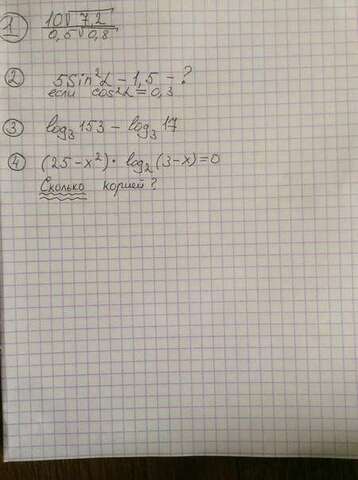 1 10√7,2 / 0,5√0,8
2 5Sin²α - 1,5 - ?
если cos²α = 0,3
3 log₃153 - log₃17
4 (25 - x²) · log₂(3 - x) = 0
Сколько корней?